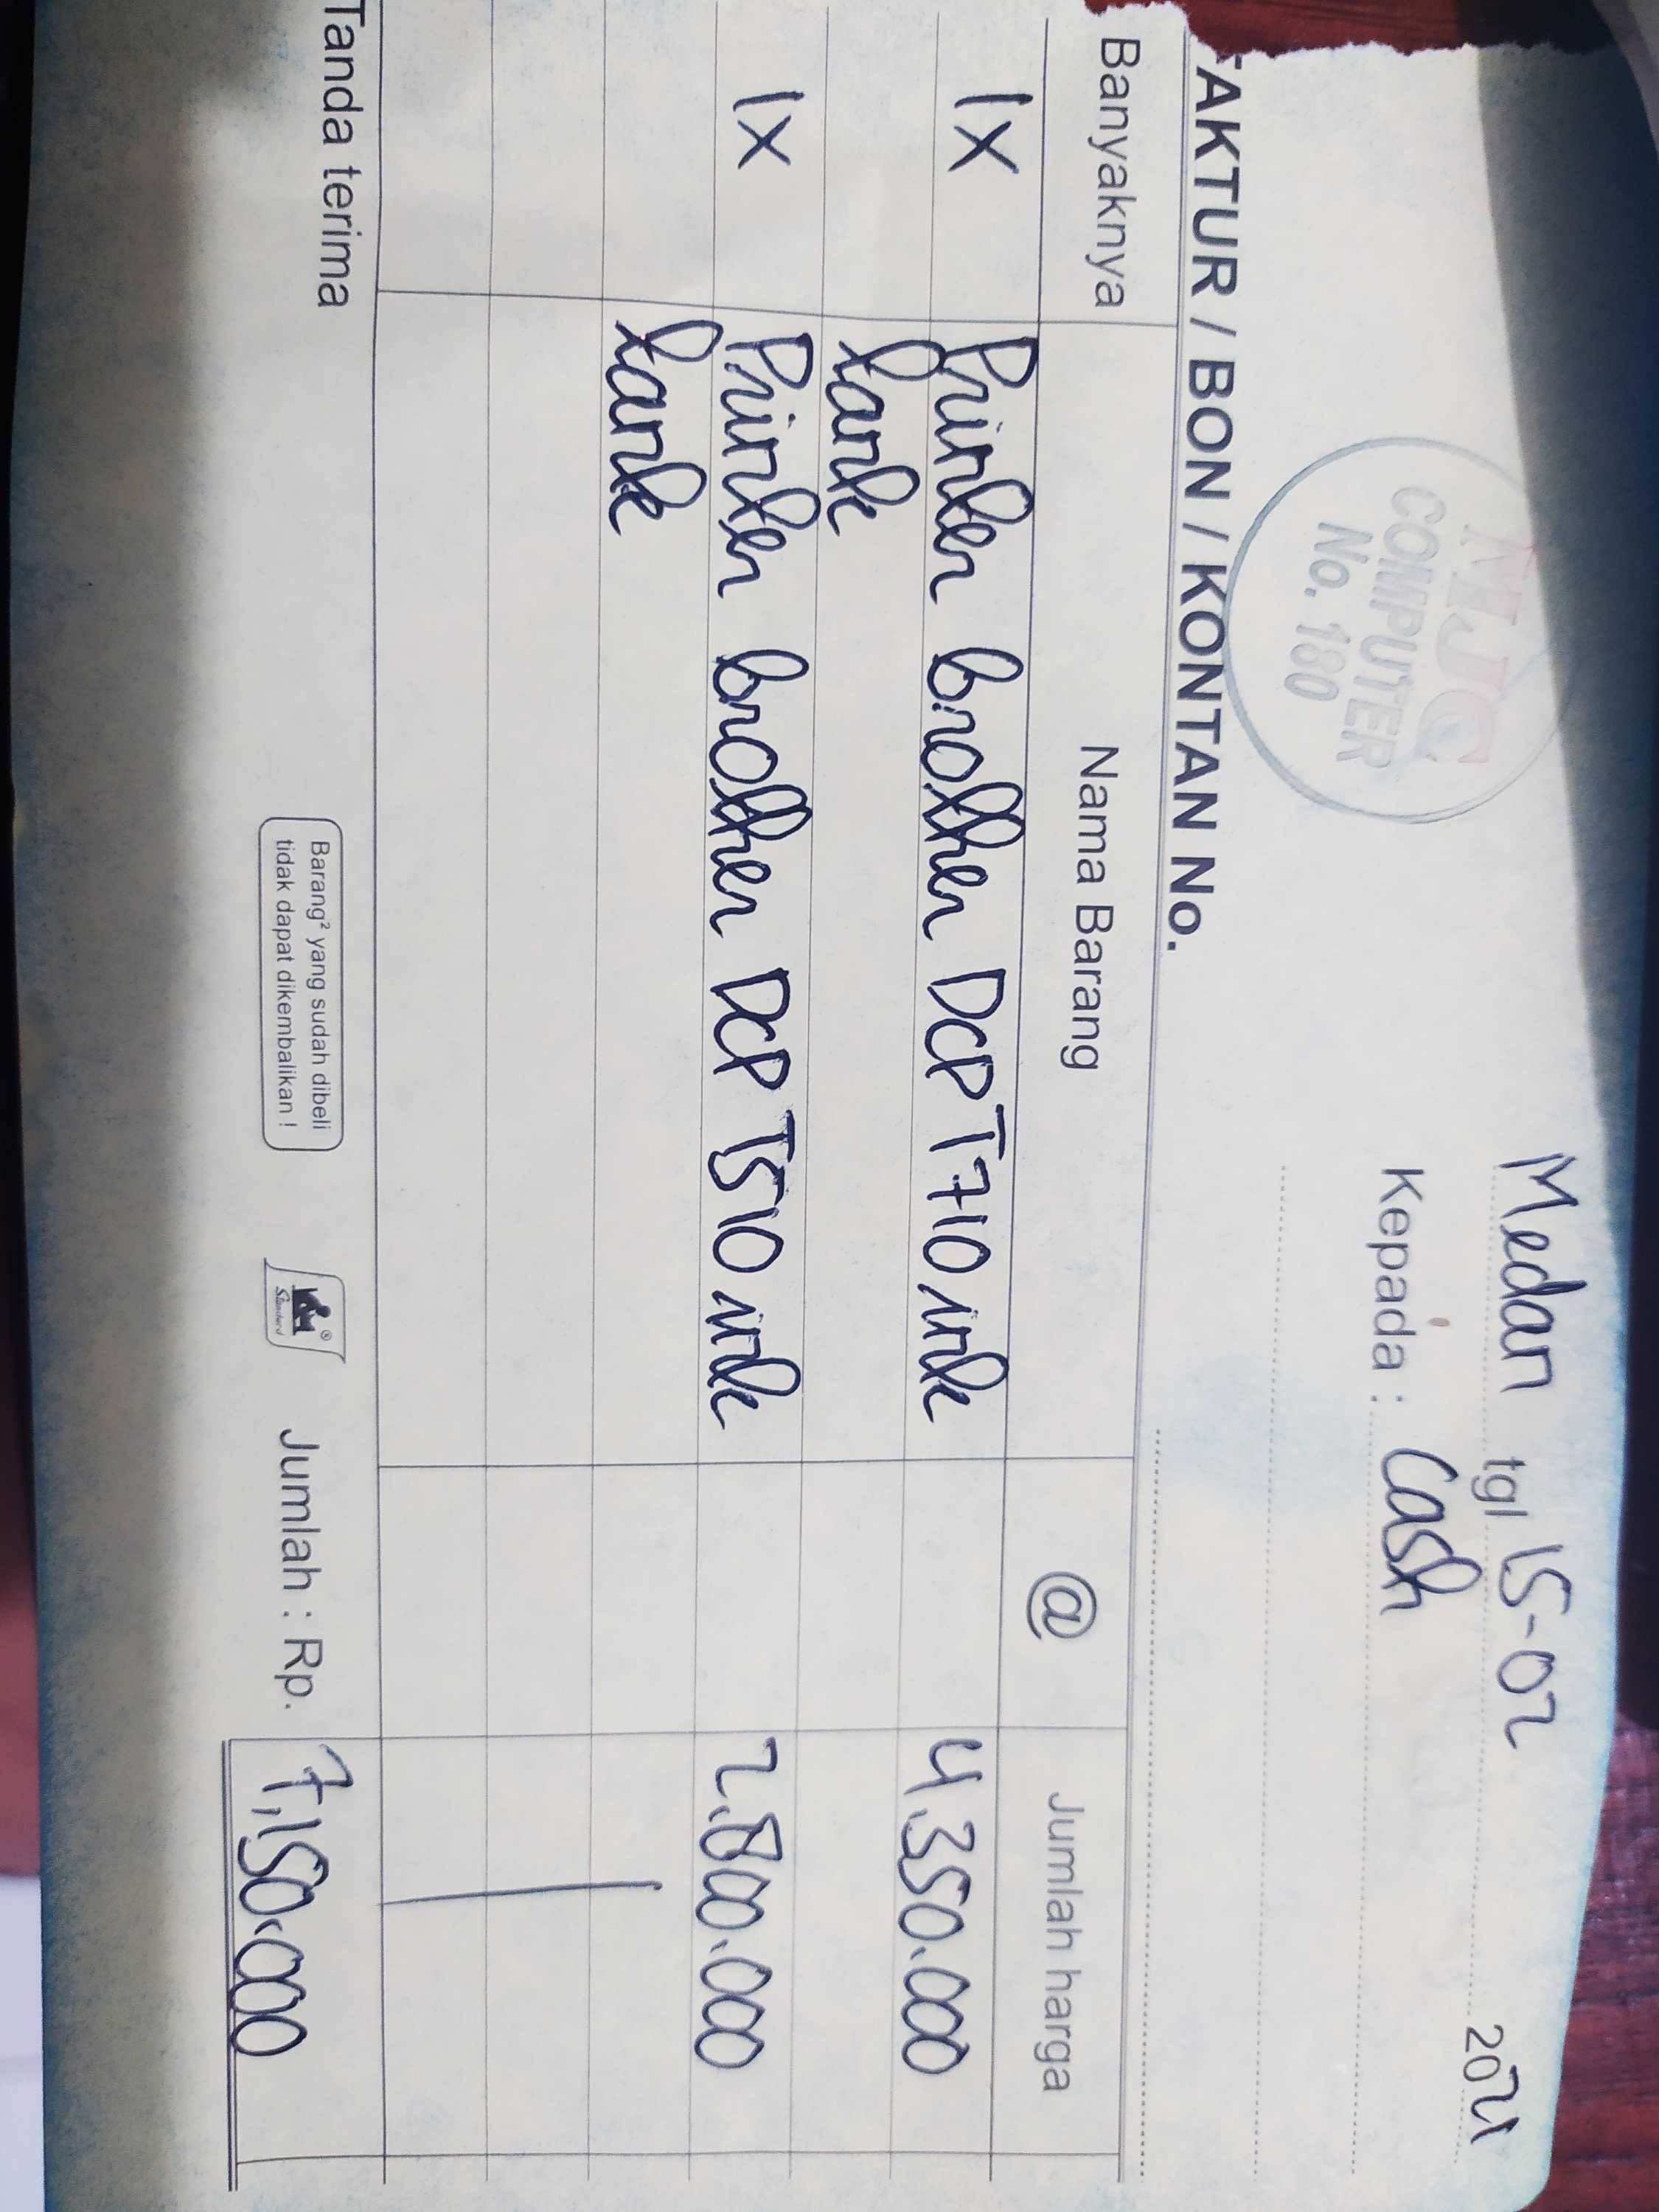 MJC
COMPUTER
No. 180
Medan tgl 15-02 2021
Kepada : Cash
FAKTUR / BON / KONTAN No.
Banyaknya Nama Barang @ Jumlah harga
1x Printer brother DCP T710 ink 4.350.000
tank
1x Printer brother DCP T510 ink 2.800.000
tank
Tanda terima
Barang² yang sudah dibeli
tidak dapat dikembalikan !
Standard ®
Jumlah : Rp. 7,150.000